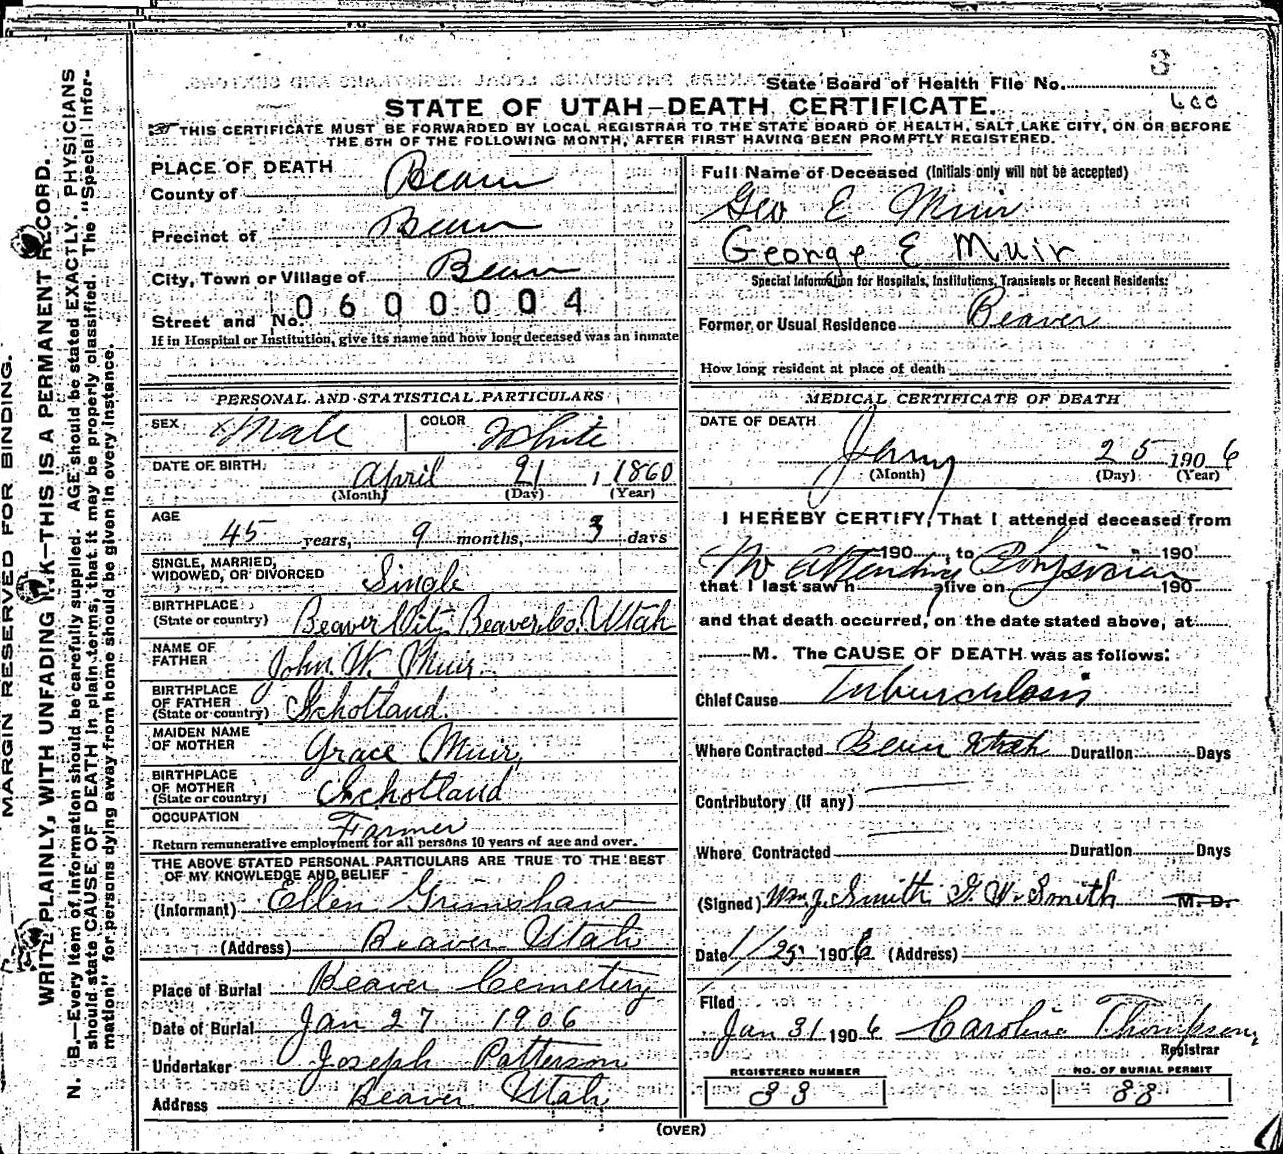 3
State Board of Health File No.
600
STATE OF UTAH—DEATH CERTIFICATE.
THIS CERTIFICATE MUST BE FORWARDED BY LOCAL REGISTRAR TO THE STATE BOARD OF HEALTH, SALT LAKE CITY, ON OR BEFORE
THE 5TH OF THE FOLLOWING MONTH, AFTER FIRST HAVING BEEN PROMPTLY REGISTERED.
MARGIN RESERVED FOR BINDING.
WRITE PLAINLY, WITH UNFADING INK—THIS IS A PERMANENT RECORD.
N. B.—Every item of information should be carefully supplied. AGE should be stated EXACTLY. PHYSICIANS
should state CAUSE OF DEATH in plain terms, that it may be properly classified. The "Special Infor-
mation" for persons dying away from home should be given in every instance.
PLACE OF DEATH
County of Beaver
Precinct of Beaver
City, Town or Village of Beaver
0600004
Street and No.
If in Hospital or Institution, give its name and how long deceased was an inmate
PERSONAL AND STATISTICAL PARTICULARS
SEX Male COLOR White
DATE OF BIRTH April 21, 1860
(Month) (Day) (Year)
AGE
45 years, 9 months, 3 days
SINGLE, MARRIED,
WIDOWED, OR DIVORCED Single
BIRTHPLACE
(State or country) Beaver City Beaver Co. Utah
NAME OF
FATHER John W. Muir
BIRTHPLACE
OF FATHER
(State or country) Schotland
MAIDEN NAME
OF MOTHER Grace Muir
BIRTHPLACE
OF MOTHER
(State or country) Schotland
OCCUPATION Farmer
Return remunerative employment for all persons 10 years of age and over.
THE ABOVE STATED PERSONAL PARTICULARS ARE TRUE TO THE BEST
OF MY KNOWLEDGE AND BELIEF
(Informant) Ellen Grimshaw
(Address) Beaver Utah
Place of Burial Beaver Cemetery
Date of Burial Jan 27 1906
Undertaker Joseph Patterson
Address Beaver Utah
Full Name of Deceased (Initials only will not be accepted)
Geo E Muir
George E Muir
Special Information for Hospitals, Institutions, Transients or Recent Residents:
Former or Usual Residence Beaver
How long resident at place of death
MEDICAL CERTIFICATE OF DEATH
DATE OF DEATH
Jany 25 1906
(Month) (Day) (Year)
I HEREBY CERTIFY, That I attended deceased from
190 , to 190
No attending Physician
that I last saw h alive on 190
and that death occurred, on the date stated above, at
M. The CAUSE OF DEATH was as follows:
Chief Cause Tuburculosis
Where Contracted Beaver Utah Duration Days
Contributory (if any)
Where Contracted Duration Days
(Signed) Wm J. Smith G. W. Smith M. D.
Date 1/25 1906 (Address)
Filed
Jan 31 1906 Caroline Thompson
Registrar
REGISTERED NUMBER NO. OF BURIAL PERMIT
33 88
(OVER)